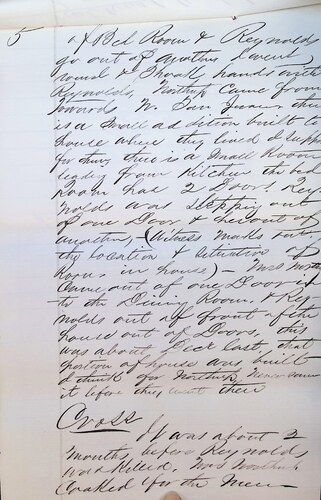 5 of Bed Room & Reynolds
go out of another I went
round & Shook hands with
Reynolds, Northup Came from
towards the Barn, I know there
is a Small addition built to
house where they lived I suppose
for them, there is a Small Room
leading from Kitchen the bed
Room has 2 Doors. Rey
nolds was Stepping out
of one Door & Servant of
another, — (Witness Marks out
the location & situation of
Rooms in house) — Mrs North
Came out of one Door in
to the Dining Room. & Rey
nolds out of front of the
house out of Doors, this
was about Dec last, that
portion of house was built
I think for Northup, never saw
it before they went there
Cross
It was about 2
months before Reynolds
was Killed, Mrs Northup
Cooked for the Men